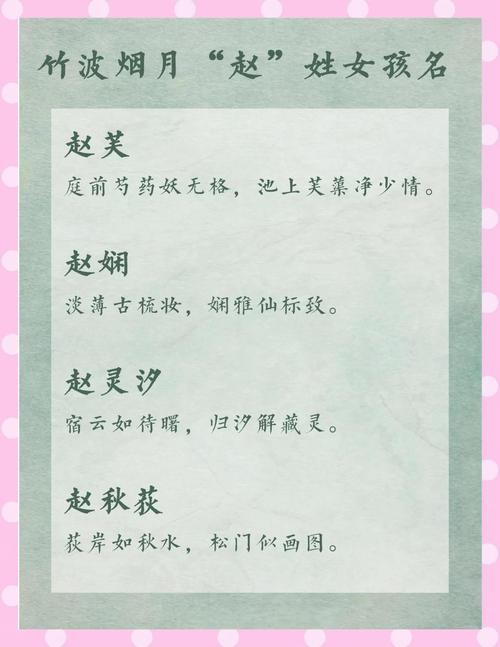 竹波烟月“赵”姓女孩名
赵芙
庭前芍药妖无格，池上芙蕖净少情。
赵娴
淡薄古梳妆，娴雅仙标致。
赵灵汐
宿云如待曙，归汐解藏灵。
赵秋荻
荻岸如秋水，松门似画图。